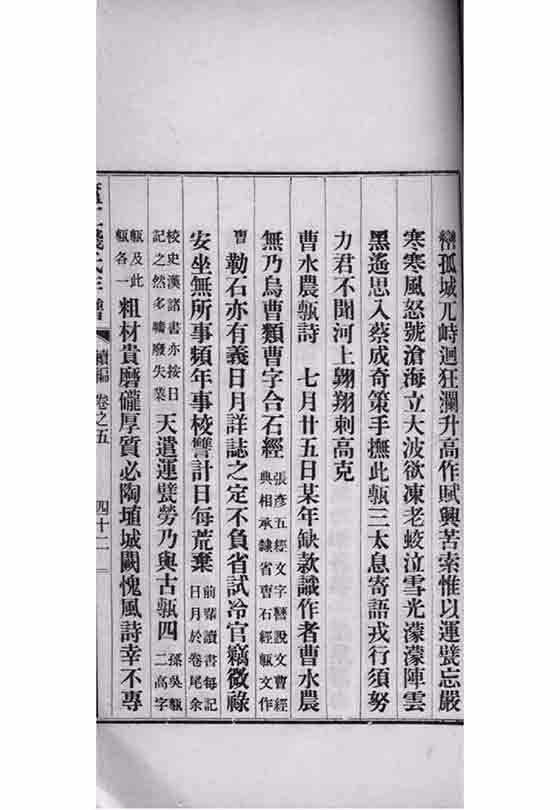 巒孤城兀峙迴狂瀾升高作賦興苦索惟以運甓忘嚴
寒寒風怒號滄海立大波欲凍老蛟泣雪光濛濛陣雲
黑遙思入蔡成奇策手撫此甎三太息寄語戎行須努
力君不聞河上翱翔刺高克
曹水農甎詩 七月廿五日某年缺款識作者曹水農
無乃烏曹類曹字合石經
張彥五經文字曹說文曹經
典相承隸省曹石經甎文作
曹勒石亦有義日月詳誌之定不負省試冷官竊微祿
安坐無所事頻年事校讐計日每荒棄
前輩讀書每記
日月於卷尾余
校史漢諸書亦按日
記之然多嘯廢失業
天遣運甓勞乃與古甎四
孫吳甎
二高字
甎及此
甎各一
粗材貴磨礲厚質必陶埴城闕愧風詩幸不專
續編 卷之五 四十二